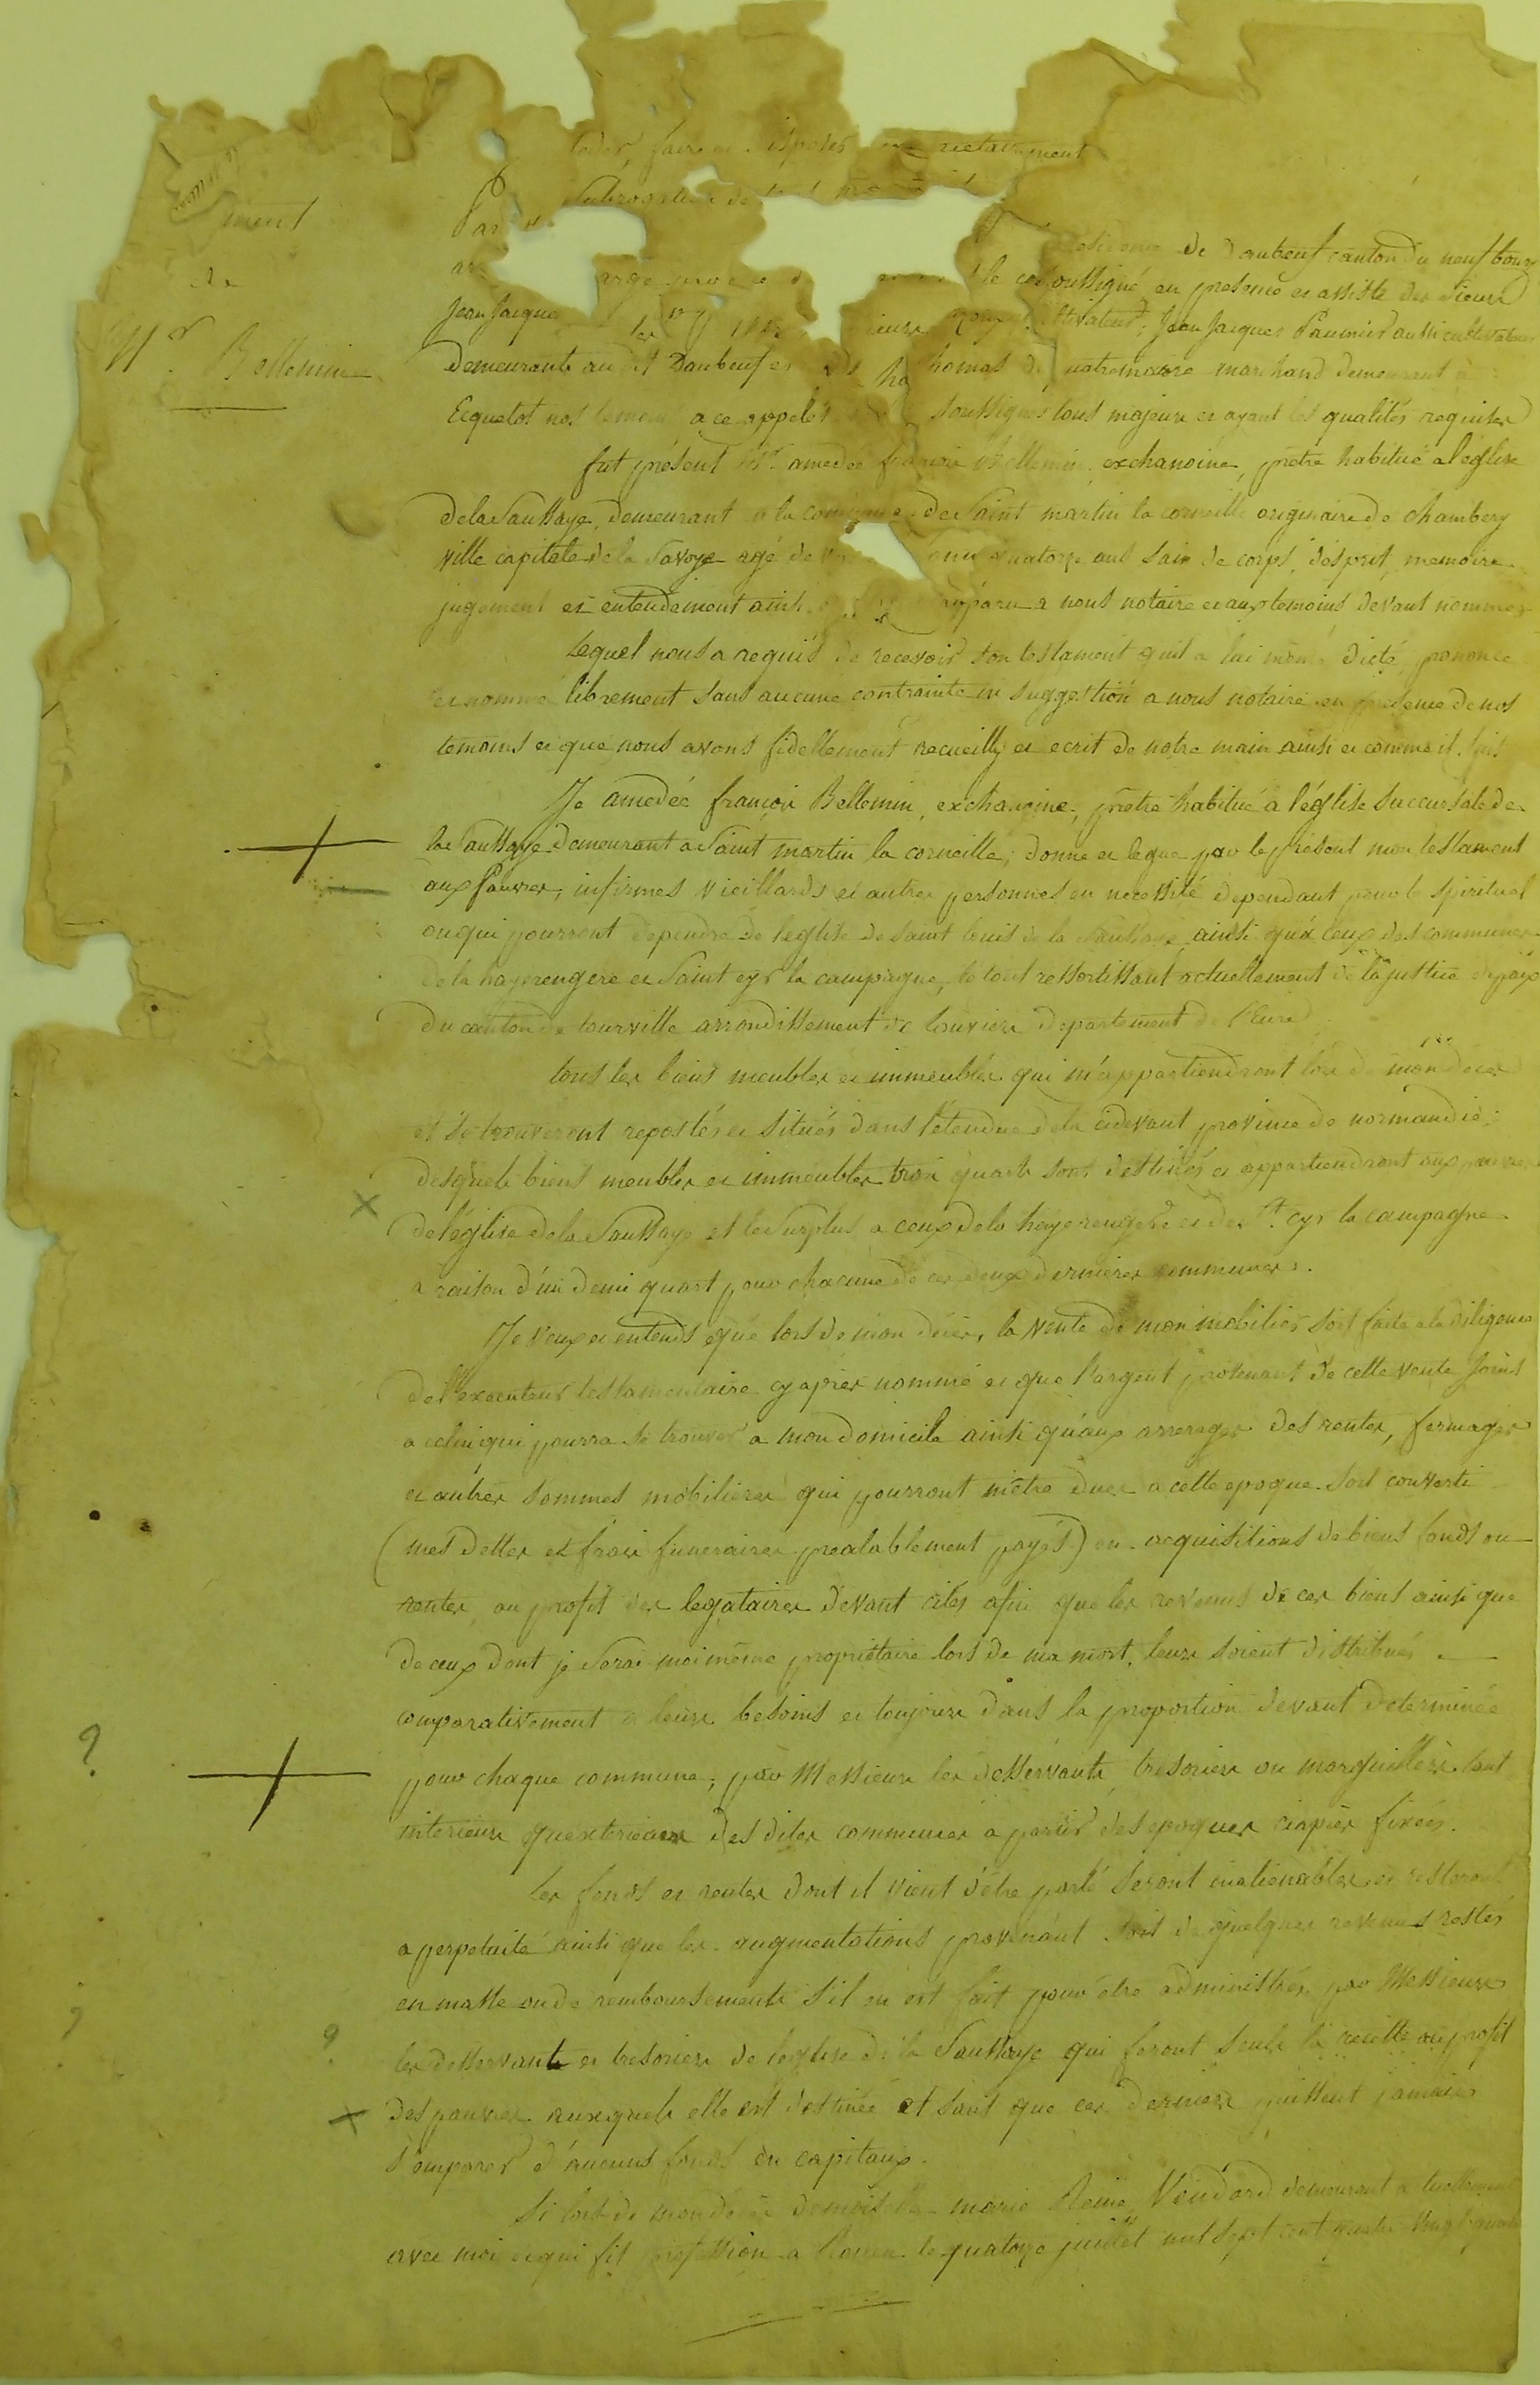 ceder, faire et disposer
subrogation de
Par
residence de Daubeuf canton du neufbourg
soussigné, en presence et assisté des sieurs
Jean Jacques cultivateur, Jean Jacques Paumier aussi cultivateur
Demeurants au dit Daubeuf et homas de quatremarre marchand demeurant à
Ecquetot nos temoins a ce appelés soussignés tous majeurs et ayant les qualités requises
fut présent Mr. amedée françois Bellemin, exchanoine, prêtre habitué a l'église
de la Saussaye, demeurant en la commune de Saint martin la corneille originaire de Chambery
ville capitale de la Savoye agé de quatorze ans sain de corps, d'esprit, memoire
jugement et entendement ainsi apparu a nous notaire et aux temoins devant nommés
Lequel nous a requis de recevoir son testament qu'il a lui même dicté, prononcé
et nommé librement sans aucune contrainte ni suggestion a nous notaire en presence de nos
temoins et que nous avons fidellement recueilly et ecrit de notre main ainsi et comme il suit
Je amedée françois Bellemin, exchanoine, prêtre habitué à l'église succursale de
la Saussaye demeurant a Saint martin la corneille, donne et legue par le présent mon testament
aux pauvres, infirmes vieillards et autres personnes en necessité dependant pour le spirituel
ou qui pourront dependre de l'eglise de saint louis de la Saussaye, ainsi qu'à ceux des communes
de la hayerengere et Saint cyr la campagne, le tout ressortissant actuellement de la justice de paix
du canton de tourville arrondissement de louviers departement de l'Eure
tous les biens meubles et immeubles qui m'appartiendront lors de mon décès
et se trouveront repostés et situés dans l'étendue de la cidevant province de normandie;
desquels biens meubles et immeubles trois quarts sont destinés et appartiendront aux pauvres
de l'église de la Saussaye et le surplus a ceux de la hayerengere et de St. cyr la campagne
a raison d'un demi quart pour chacune de ces deux dernieres communes.
Je veux et entends que lors de mon décès, la vente de mon mobilier soit faite a la diligence
de l'executeur testamentaire cy après nommé et que l'argent provenant de cette vente joint
a celui qui pourra se trouver a mon domicile ainsi qu'aux arrerages des rentes, fermages
et autres sommes mobilieres qui pourront m'être dues a cette epoque soit converti
(mes dettes et frais funeraires prealablement payés) en acquisitions de biens fonds ou
rentes, au profit des legataires devant cités afin que les revenus de ces biens ainsi que
de ceux dont je serai moi même propriétaire lors de ma mort, leurs soient distribués
comparativement a leurs besoins et toujours dans la proportion devant determinée
pour chaque commune, par Messieurs les desservants, tresoriers ou marguilliers tant
interieurs qu'exterieurs des dites communes a partir des epoques ciaprès fixées.
Les fonds et rentes dont il vient d'être parlé seront inalienables et resteront
a perpetuité ainsi que les augmentations provenant soit de quelques revenus restés
en masse ou de remboursements s'il en est fait pour être administrés par Messieurs
les desservants et tresoriers de l'eglise de la Saussaye qui feront seuls la recette au profit
des pauvres auxquels elle est destinée et sans que ces derniers puissent jamais
s'emparer d'aucuns fonds ou capitaux.
Si lors de mon décès demoiselle marie Reine Vendard demeurant actuellement
avec moi et qui fit profession a Rouen le quatorze juillet mil sept cent quatre vingt
ment
de
Mr. Bellemin
?
?
?